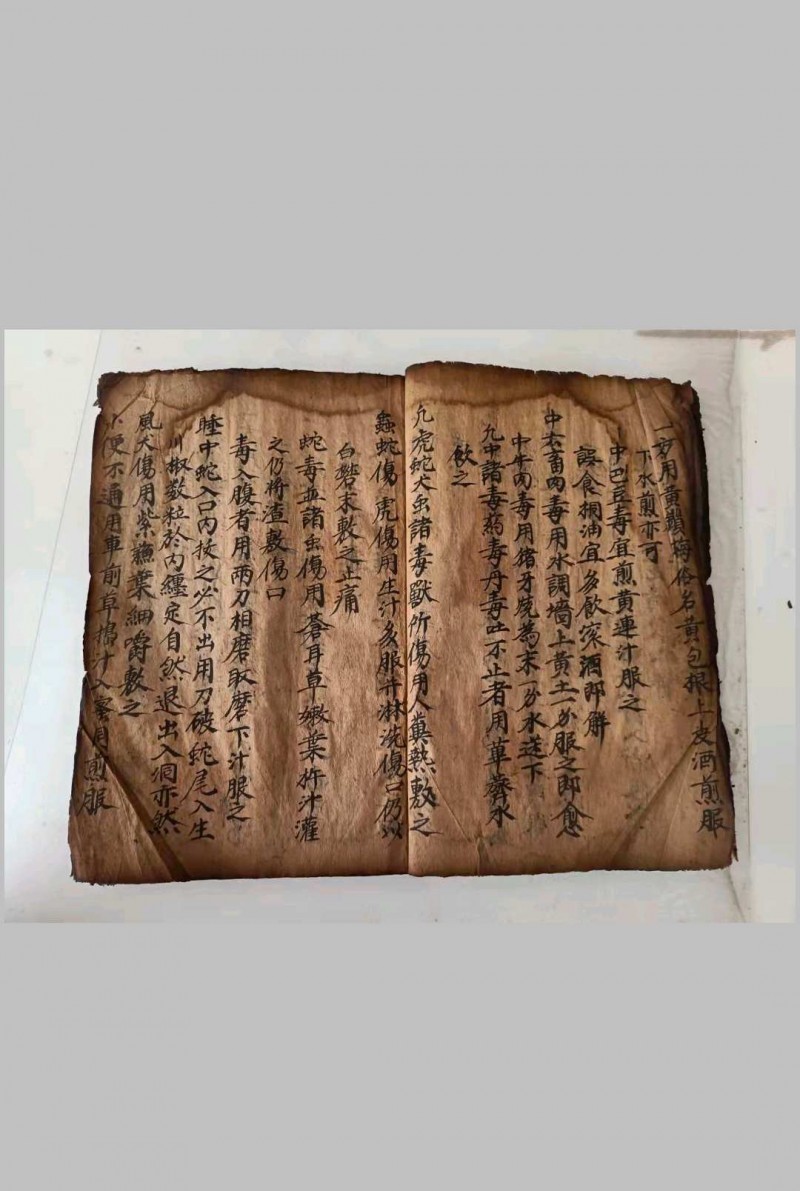 一方用黄鎖梅俗名黄包根上皮酒煎服
下水煎亦可
中巴豆毒宜煎黄連汁服之
誤食桐油宜多飲滚酒即解
中六畜肉毒用水調墻上黄土一分服之即愈
中牛肉毒用猪牙燒為末一分水送下
凢中諸毒药毒丹毒吐不止者用草薺水
飲之
凢虎蛇犬虫諸毒獸所傷用人糞熱敷之
蟲蛇傷 虎傷用生汁多服并淋洗傷口仍以
白礬末敷之止痛
蛇毒並諸虫傷用蒼耳草嫩葉杵汁灌
之仍将渣敷傷口
毒入腹者用兩刀相磨取磨下汁服之
睡中蛇入口内拔之必不出用刀破蛇尾入生
川椒数粒於内纏定自然退出入洞亦然
風犬傷用紫蘓葉細嚼敷之
小便不通用車前草搗汁入蜜同煎服